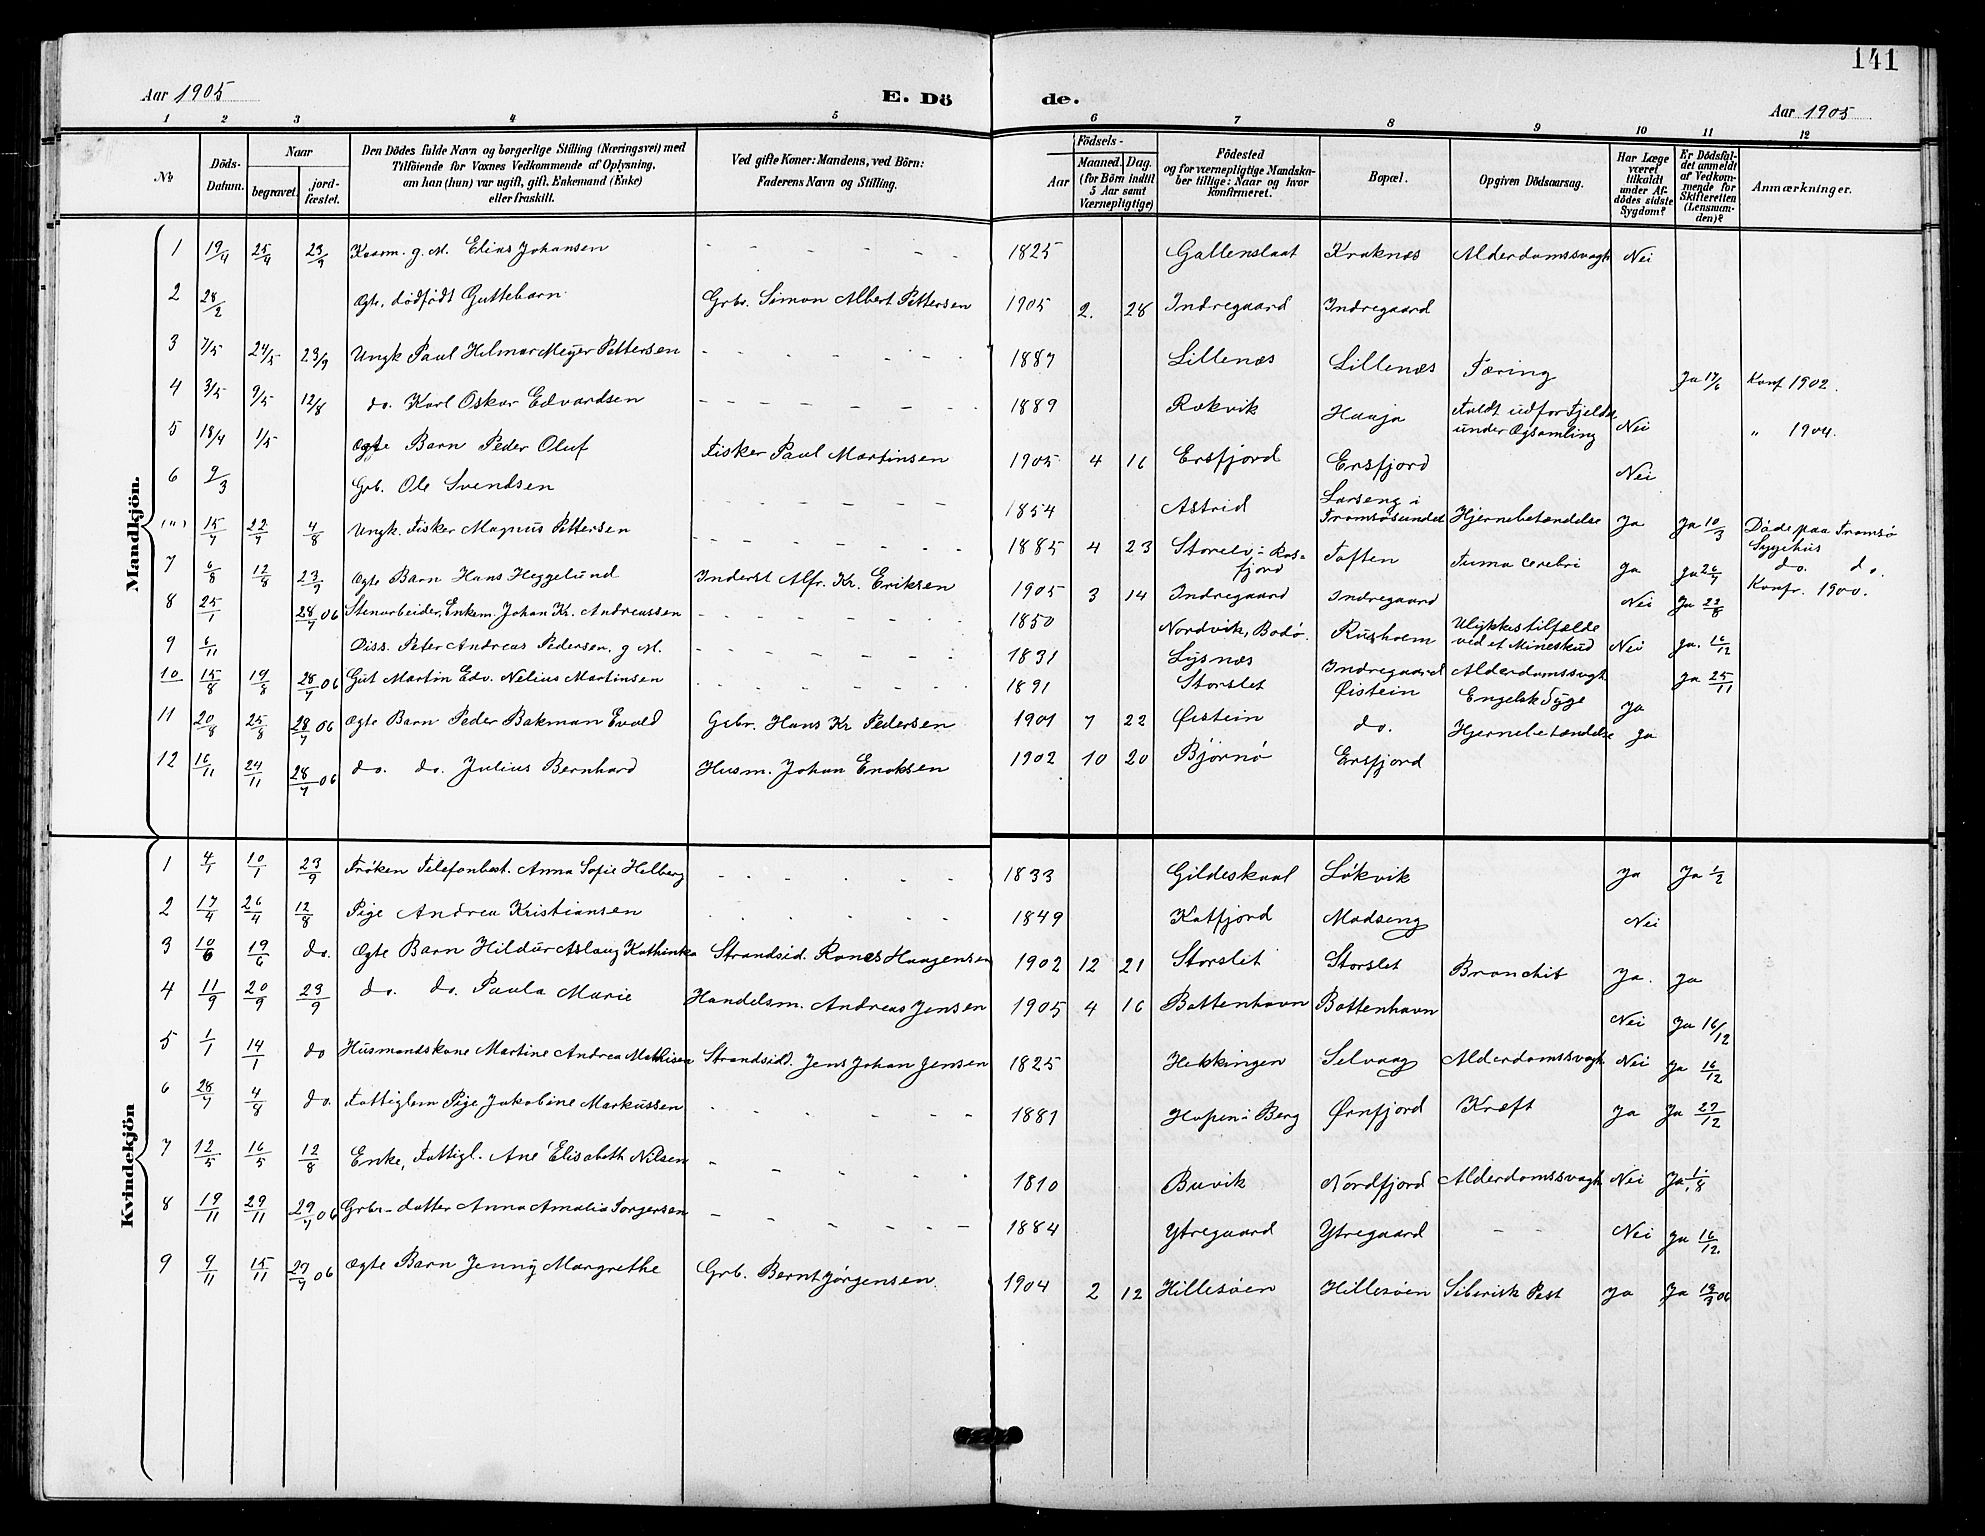 141
Aar 1905 E. Dö de. Aar 1905
1 2 3 4 5 6 7 8 9 10 11 12
No Döds-Datum. Naar begravet. jord-fæstet. Den Dödes fulde Navn og borgerlige Stilling (Næringsvei) med Tilföiende for Voxnes Vedkommende af Oplysning, om han (hun) var ugift, gift, Enkemand (Enke) eller fraskilt. Ved gifte Koner: Mandens, ved Börn: Faderens Navn og Stilling. Födsels- Aar Maaned. Dag. (for Börn indtil 5 Aar samt Værnepligtige) Födested og for værnepligtige Mandskaber tillige: Naar og hvor konfirmeret. Bopæl. Opgiven Dödsaarsag. Har Læge været tilkaldt under Afdödes sidste Sygdom? Er Dödsfaldet anmeldt af Vedkommende for Skifteretten (Lensmanden)? Anmærkninger.
Mandkjön.
1 19/4 25/4 23/9 Kaarm. g. M. Elias Johansen 1825 Gallenslaat Kraknæs Alderdomssvagh Nei
2 28/2 Ægte, dødfødt Guttebarn Grbr. Simon Albert Pettersen 1905 2. 28 Indregaard Indregaard
3 7/5 24/5 23/9 Ungk Paul Hilmar Meyer Pettersen 1887 Lillenæs Lillenæs Tæring Ja 17/6 Konf 1902.
4 3/5 9/5 12/8 do. Karl Oskar Edvardsen 1889 Rekvik Haaja Faldt udfor Fjeldet under Ægsamling Nei " 1904.
5 18/4 1/5 Ægte Barn Peder Oluf Fisker Paul Martinsen 1905 4 16 Ersfjord Ersfjord Nei
6 9/3 Grb. Ole Svendsen 1854 Astrid Larseng i Tromsøsundet Hjernebetændelse Ja Ja 10/3 Døde paa Tromsø Sygehus
15/7 22/7 4/8 Ungk. Fisker Magnus Pettersen 1885 4 23 Storelv i Rosfjord Toften Tuma cerebri Ja Ja 26/7 do. do. Konfr. 1900.
7 6/8 12/8 23/9 Ægte Barn Hans Heggelund Inderst Alfr. Kr. Eriksen 1905 3 14 Indregaard Indregaard Nei Ja 22/8
8 25/1 28/7 06 Stenarbeider, Enkem. Johan Kr. Andreassen 1850 Nordvik, Bodø. Rusholm Ulykkestilfælde ved et Mineskud Nei Ja. 16/12
9 6/11 Diss. Peter Andreas Pedersen. g M. 1831 Lysnæs Indregaard Alderdomssvagh Ja 25/11
10 15/8 19/8 28/7 06 Gut Martin Edv. Nelius Martinsen 1891 Storslet Øistein Engelsk Syge Ja
11 20/8 25/8 28/7 06 Ægte Barn Peder Bakman Evald Grbr. Hans Kr Pedersen 1901 7 22 Øistein do. Hjernebetændelse Ja
12 16/11 24/11 28/7 06 do. do. Julius Bernhard Husm. Johan Enoksen 1902 10 20 Bjørnø Ersfjord
Kvindekjön
1 4/1 10/1 23/9 Frøken Telefonbest. Anna Sofie Helberg 1833 Gildeskaal Løkvik Ja Ja 1/2
2 17/4 26/4 12/8 Pige Andrea Kristiansen 1849 Katfjord Madseng Nei
3 10/6 19/6 do. Ægte Barn Hildur Aslaug Kathinka Strandsid. Ranes Haagensen 1902 12 21 Storslet Storslet Bronchit Ja. Ja
4 11/9 20/9 23/9 do. do. Paula Marie Handelsm. Andreas Jensen 1905 4 16 Battenhavn Battenhavn Nei Ja 16/12
5 1/1 14/1 do Husmandskone Martine Andrea Mathisen Strandsidd. Jens Johan Jensen 1825 Hekkingen Selvaag Alderdomssvagh Nei Ja 16/12
6 28/7 4/8 do. Fattiglem Pige Jakobine Markussen 1881 Hopen i Berg Ørnfjord Kræft Ja Ja 27/12
7 12/5 16/5 12/8 Enke, Fattigl. Ane Elisabeth Nilsen 1810 Buvik Nordfjord Alderdomssvagh Nei Ja. 1/8
8 19/11 29/11 29/7 06 Grbr-datter Anna Amalia Torgersen 1884 Ytregaard Ytregaard Nei Ja 16/12.
9 9/11 15/11 27/7 06 Ægte Barn Jenny Margrethe Grb. Bernt Jørgensen. 1904 2 12 Hillesøen Hillesøen Siberisk Pest Ja Ja 19/3 06